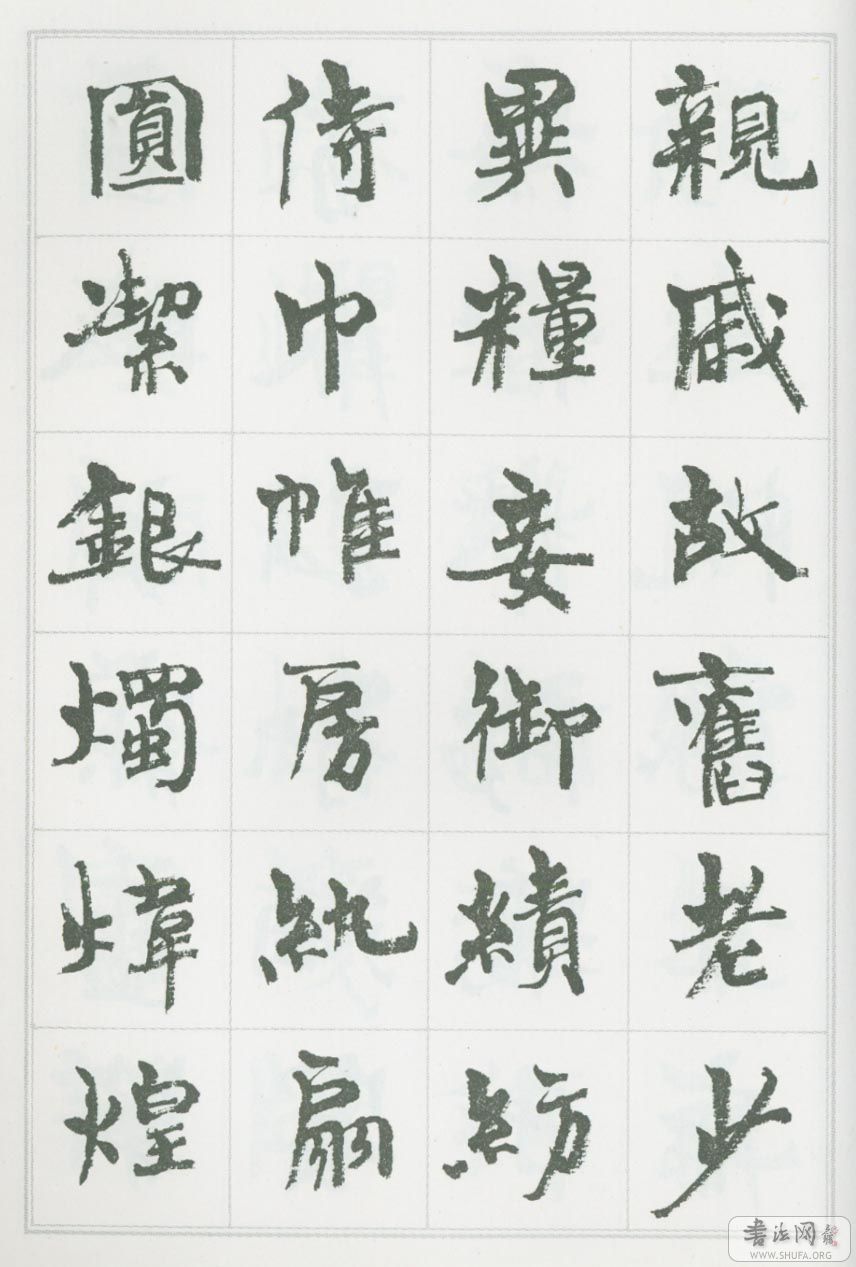 親戚故舊老少
異糧妾御績紡
侍巾帷房紈扇
圓潔銀燭煒煌
書法网
WWW.SHUFA.ORG